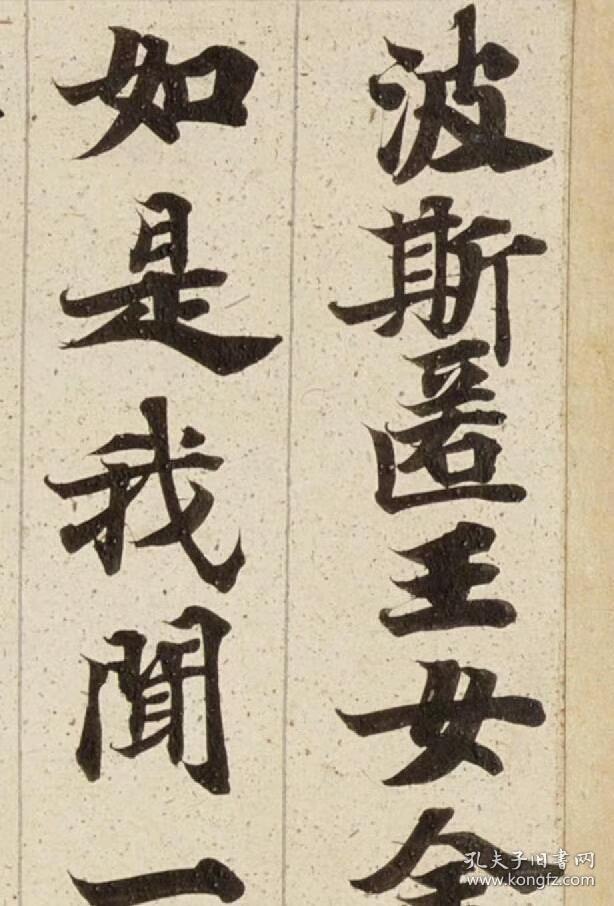 波斯匿王女金
如是我聞一
孔夫子旧书网
www.kongfz.com